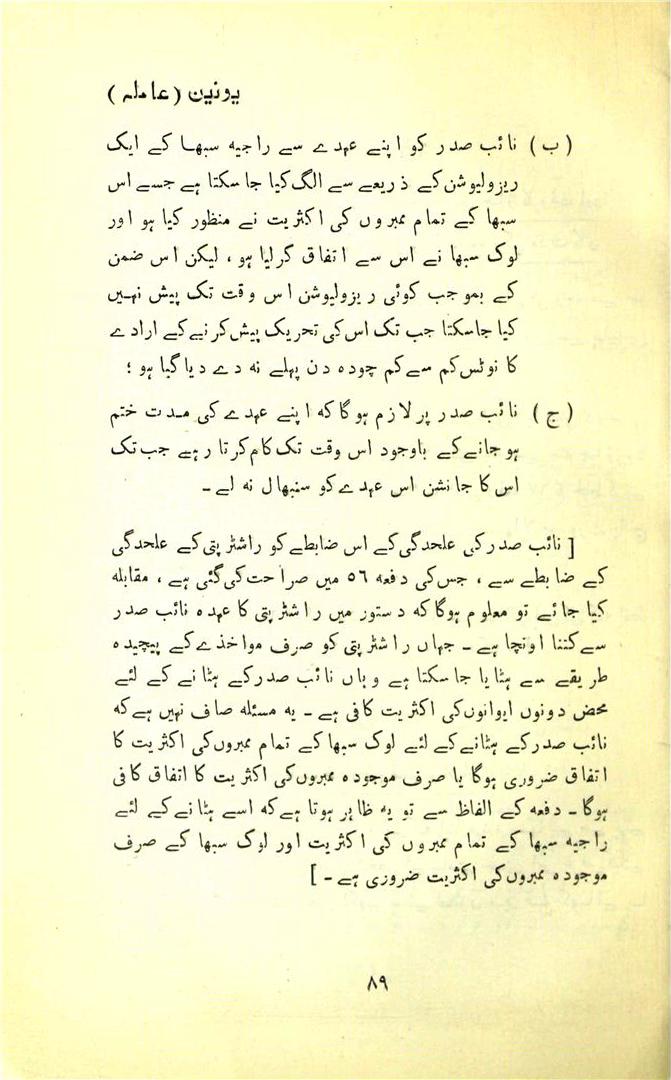 یونین (عاملہ)
(ب) نائب صدر کو اپنے عہدے سے راجیہ سبھا کے ایک
ریزولیوشن کے ذریعے سے الگ کیا جا سکتا ہے جسے اس
سبھا کے تمام ممبروں کی اکثریت نے منظور کیا ہو اور
لوک سبھا نے اس سے اتفاق کرلیا ہو ، لیکن اس ضمن
کے بموجب کوئی ریزولیوشن اس وقت تک پیش نہیں
کیا جاسکتا جب تک اس کی تحریک پیش کرنے کے ارادے
کا نوٹس کم سے کم چودہ دن پہلے نہ دے دیا گیا ہو ؛
(ج) نائب صدر پر لازم ہوگا کہ اپنے عہدے کی مدت ختم
ہو جانے کے باوجود اس وقت تک کام کرتا رہے جب تک
اس کا جانشن اس عہدے کو سنبھال نہ لے ۔
[ نائب صدر کی علحدگی کے اس ضابطے کو راشٹرپتی کے علحدگی
کے ضابطے سے ، جس کی دفعہ ٥٦ میں صراحت کی گئی ہے ، مقابلہ
کیا جائے تو معلوم ہوگا کہ دستور میں راشٹرپتی کا عہدہ نائب صدر
سے کتنا اونچا ہے ۔ جہاں راشٹرپتی کو صرف مواخذے کے پیچیدہ
طریقے سے ہٹایا جا سکتا ہے وہاں نائب صدر کے ہٹانے کے لئے
محض دونوں ایوانوں کی اکثریت کافی ہے ۔ یہ مسئلہ صاف نہیں ہے کہ
نائب صدر کے ہٹانے کے لئے لوک سبھا کے تمام ممبروں کی اکثریت کا
اتفاق ضروری ہوگا یا صرف موجودہ ممبروں کی اکثریت کا اتفاق کافی
ہوگا ۔ دفعہ کے الفاظ سے تو یہ ظاہر ہوتا ہے کہ اسے ہٹانے کے لئے
راجیہ سبھا کے تمام ممبروں کی اکثریت اور لوک سبھا کے صرف
موجودہ ممبروں کی اکثریت ضروری ہے ۔ ]
٨٩